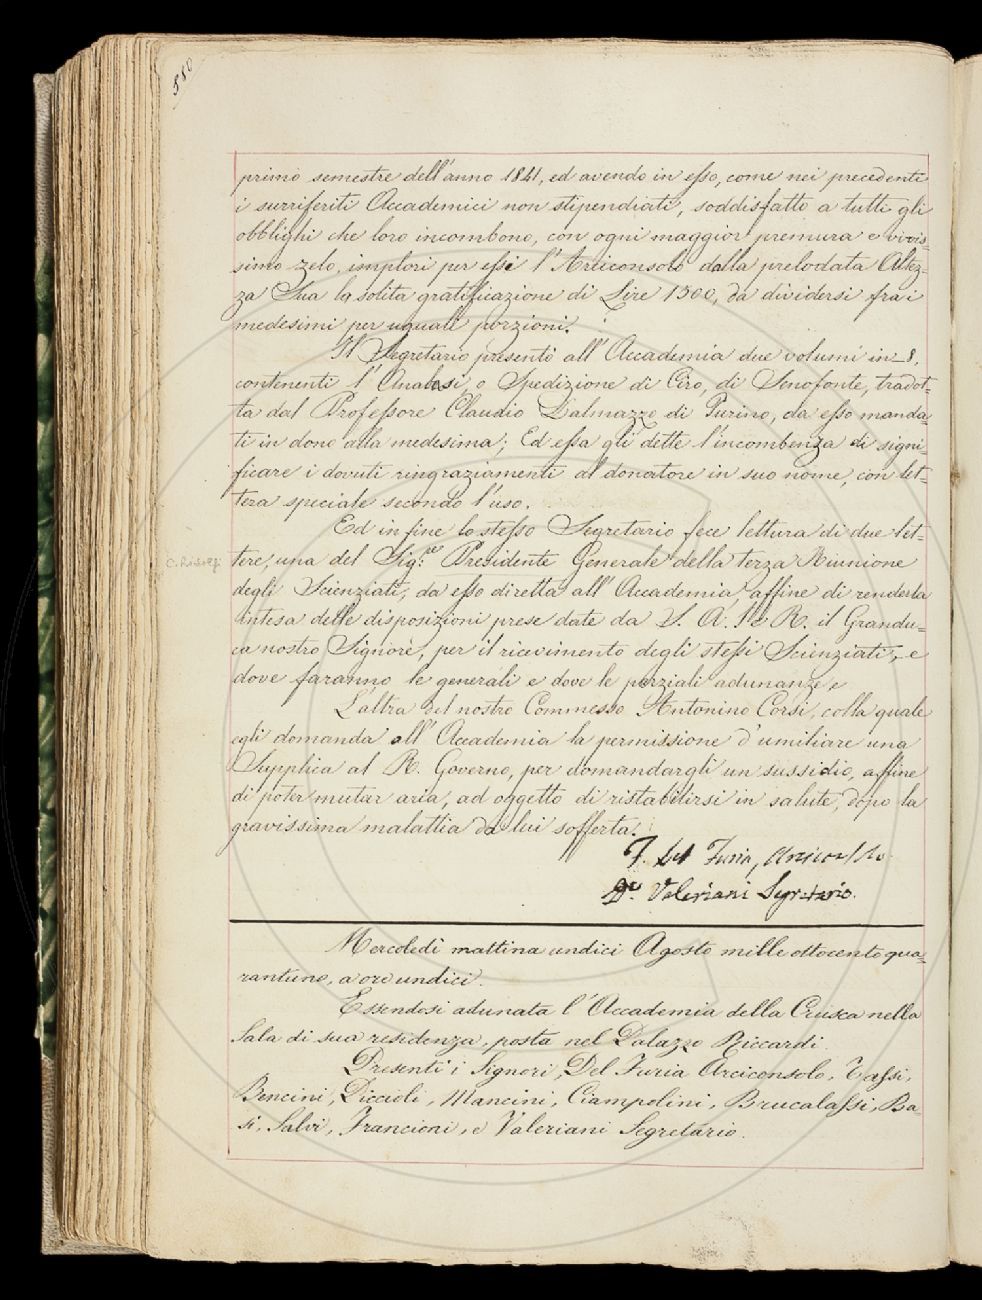 380
primo semestre dell'anno 1841, ed avendo in esso, come nei precedenti
i surriferiti Accademici non stipendiati, soddisfatto a tutti gli
obblighi che loro incombono, con ogni maggior premura e vivis=
simo zelo, implori per essi l'Arciconsolo dalla prelodata Altez=
za Sua la solita gratificazione di Lire 1500, da dividersi fra i
medesimi per uguali porzioni.
Il Segretario presentò all'Accademia due volumi in 8.
contenenti l'Anabasi, o Spedizione di Ciro, di Senofonte, tradot=
ta dal Professore Claudio Dalmazzo di Turino, da esso manda=
ti in dono alla medesima; Ed essa gli dette l'incombenza di signi=
ficare i dovuti ringraziamenti al donatore in suo nome, con let=
tera speciale secondo l'uso.
Ed in fine lo stesso Segretario fece lettura di due let=
tere, una del Sig.re Presidente Generale della terza Riunione
C. Ridolfi
degli Scienziati, da esso diretta all'Accademia, affine di renderla
intesa delle disposizioni prese date da S. A. I. e R. il Grandu=
ca nostro Signore, per il ricevimento degli stessi Scienziati, e
dove faranno le generali e dove le parziali adunanze
L'altra del nostro Commesso Antonino Corsi, colla quale
egli domanda all'Accademia la permissione d'umiliare una
Supplica al R. Governo, per domandargli un sussidio, affine
di poter mutar aria, ad oggetto di ristabilirsi in salute, dopo la
gravissima malattia da lui sofferta.
F. del Furia, Arciconsolo
Dr. Valeriani Segretario.
Mercoledì mattina undici Agosto mille ottocento qua=
rantuno, a ore undici.
Essendosi adunata l'Accademia della Crusca nella
Sala di sua residenza, posta nel Palazzo Riccardi.
Presenti i Signori, Del Furia Arciconsolo, Tassi,
Bencini, Piccioli, Mancini, Ciampolini, Brucalassi, Ba=
si, Salvi, Francioni, e Valeriani Segretario.